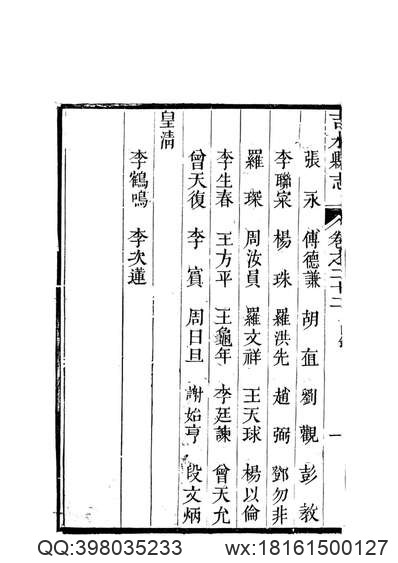 吉水縣志
卷之三十二
張永 傅德謙 胡 劉觀 彭教
李聯寀 楊珠 羅洪先 趙弼 鄧勿非
羅琛 周汝員 羅文祥 王天球 楊以倫
李生春 王方平 王龜年 李廷諫 曾天允
曾天復 李賓 周日旦 謝始亨 段文炳
皇清
李鶴鳴 李次蓮
QQ:398035233 wx:18161500127